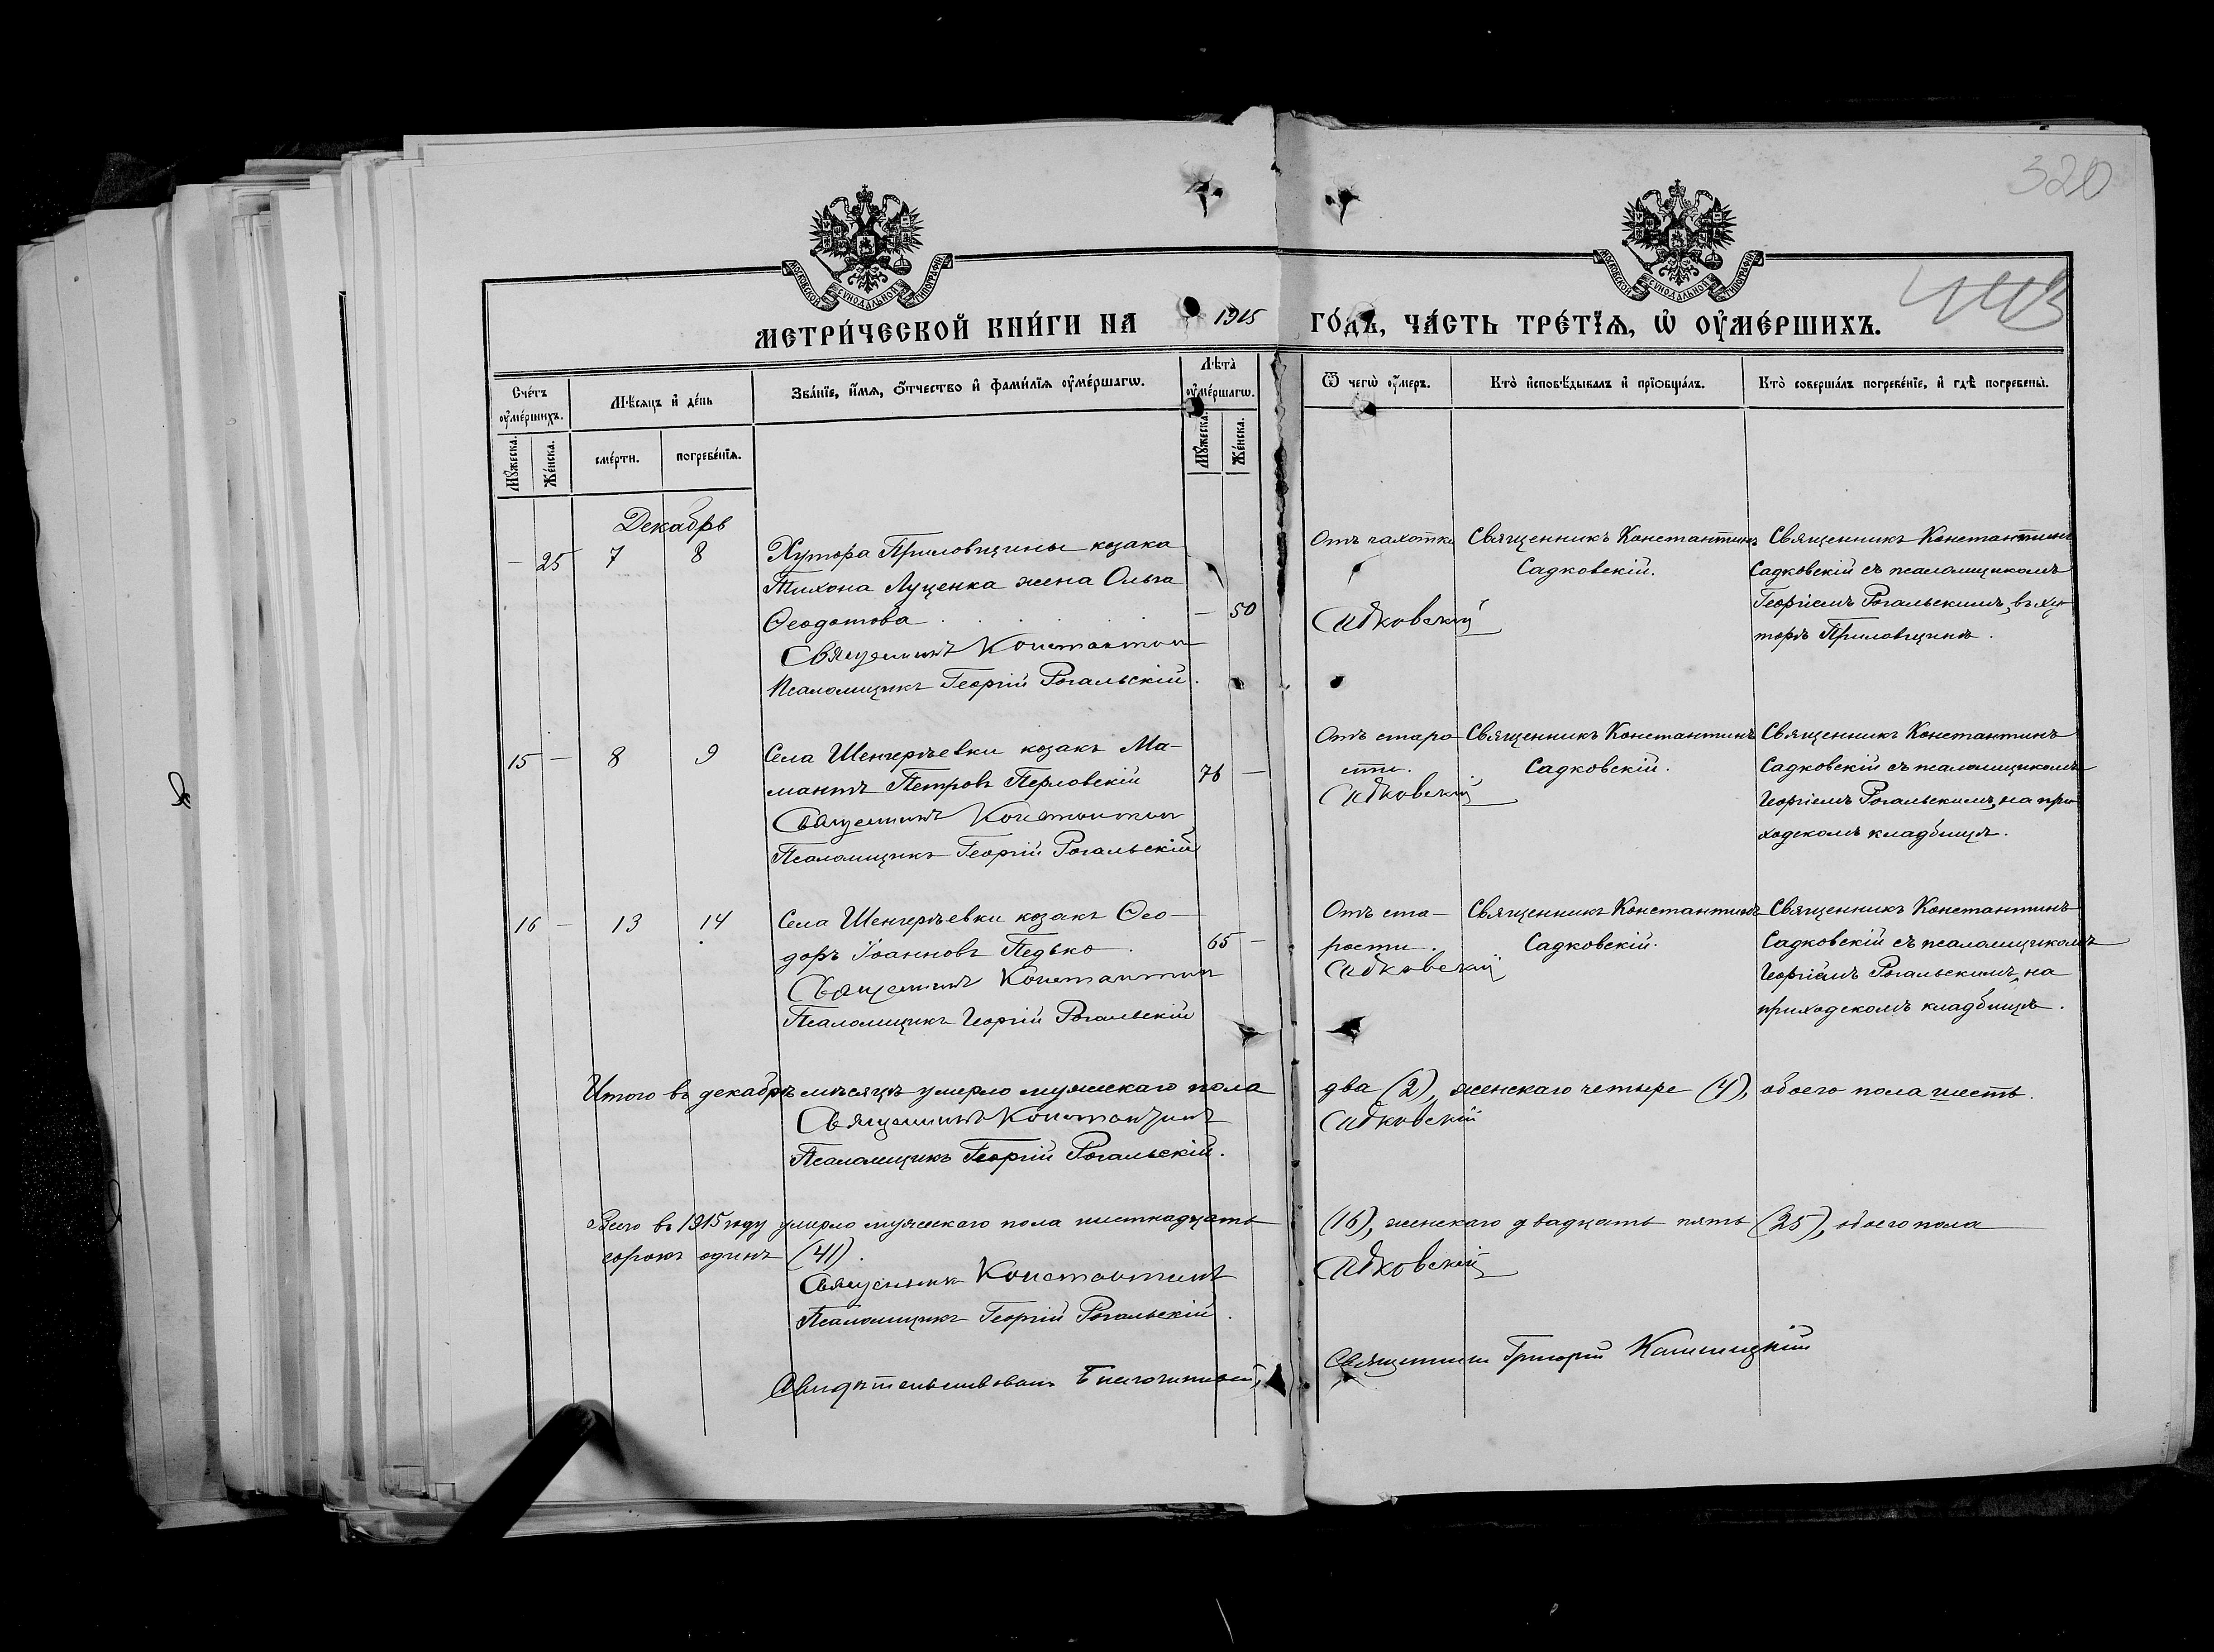 320
МОСКОВСКОЙ СѴНОДАЛЬНОЙ ТИПОГРАФІИ
МОСКОВСКОЙ СѴНОДАЛЬНОЙ ТИПОГРАФІИ
МЕТРИ́ЧЕСКОЙ КНИ́ГИ НА 1915 ГО́ДЪ, ЧА́СТЬ ТРЕ́ТЇѦ, Ѡ҆ ОУ҆МЕ́РШИХЪ.
Сче́тъ оу҆ме́ршихъ.
Мꙋ́жеска.
Же́нска.
Мѣ́сѧцъ и҆ де́нь
сме́рти.
погребе́нїѧ.
Зва́нїе, и҆́мѧ, ѻ҆́тчество и҆ фами́лїѧ оу҆ме́ршагѡ.
Лѣта̀ оу҆ме́ршагѡ.
Мꙋ́жеска.
Же́нска.
Ѿ чегѡ̀ оу҆́меръ.
Кто̀ и҆сповѣ́дывалъ и҆ прїѡбща́лъ.
Кто̀ соверша́лъ погребе́нїе, и҆ гдѣ̀ погребены̀.
Декабрь
— 25 7 8 Хутора Приловщины козака
Тихона Луценка жена Ольга
Ѳеодотова — 50
Священникъ Константин
Псаломщикъ Георгій Рогальскій.
Отъ чахотки
Садковскій
Священникъ Константинъ
Садковскій.
Священникъ Константинъ
Садковскій съ псаломщикомъ
Георгіемъ Рогальскимъ, въ ху-
торѣ Приловщинѣ.
15 — 8 9 Села Шенгерѣевки козакъ Ма-
мантъ Петровъ Перловскій 76 —
Священникъ Константин
Псаломщикъ Георгій Рогальскій
Отъ старо
сти.
Садковскій
Священникъ Константинъ
Садковскій.
Священникъ Константинъ
Садковскій съ псаломщикомъ
Георгіемъ Рогальскимъ, на при
ходскомъ кладбищѣ.
16 — 13 14 Села Шенгерѣевки козакъ Ѳео-
доръ Іоанновъ Педько. 65 —
Священникъ Константин
Псаломщикъ Георгій Рогальскій
Отъ ста-
рости.
Садковскій
Священникъ Константинъ
Садковскій.
Священникъ Константинъ
Садковскій съ псаломщикомъ
Георгіемъ Рогальскимъ, на
приходскомъ кладбищѣ.
Итого въ декабрѣ мѣсяцѣ умерло мужескаго пола два (2), женскаго четыре (4), обоего пола шесть.
Священникъ Константинъ Садковскій
Псаломщикъ Георгій Рогальскій.
Всего въ 1915 году умерло мужескаго пола шестнадцать (16), женскаго двадцать пять (25), обоего пола
сорокъ одинъ (41).
Священникъ Константинъ Садковскій
Псаломщикъ Георгій Рогальскій.
Свидѣтельствовалъ Благочинный, Священникъ Григорій